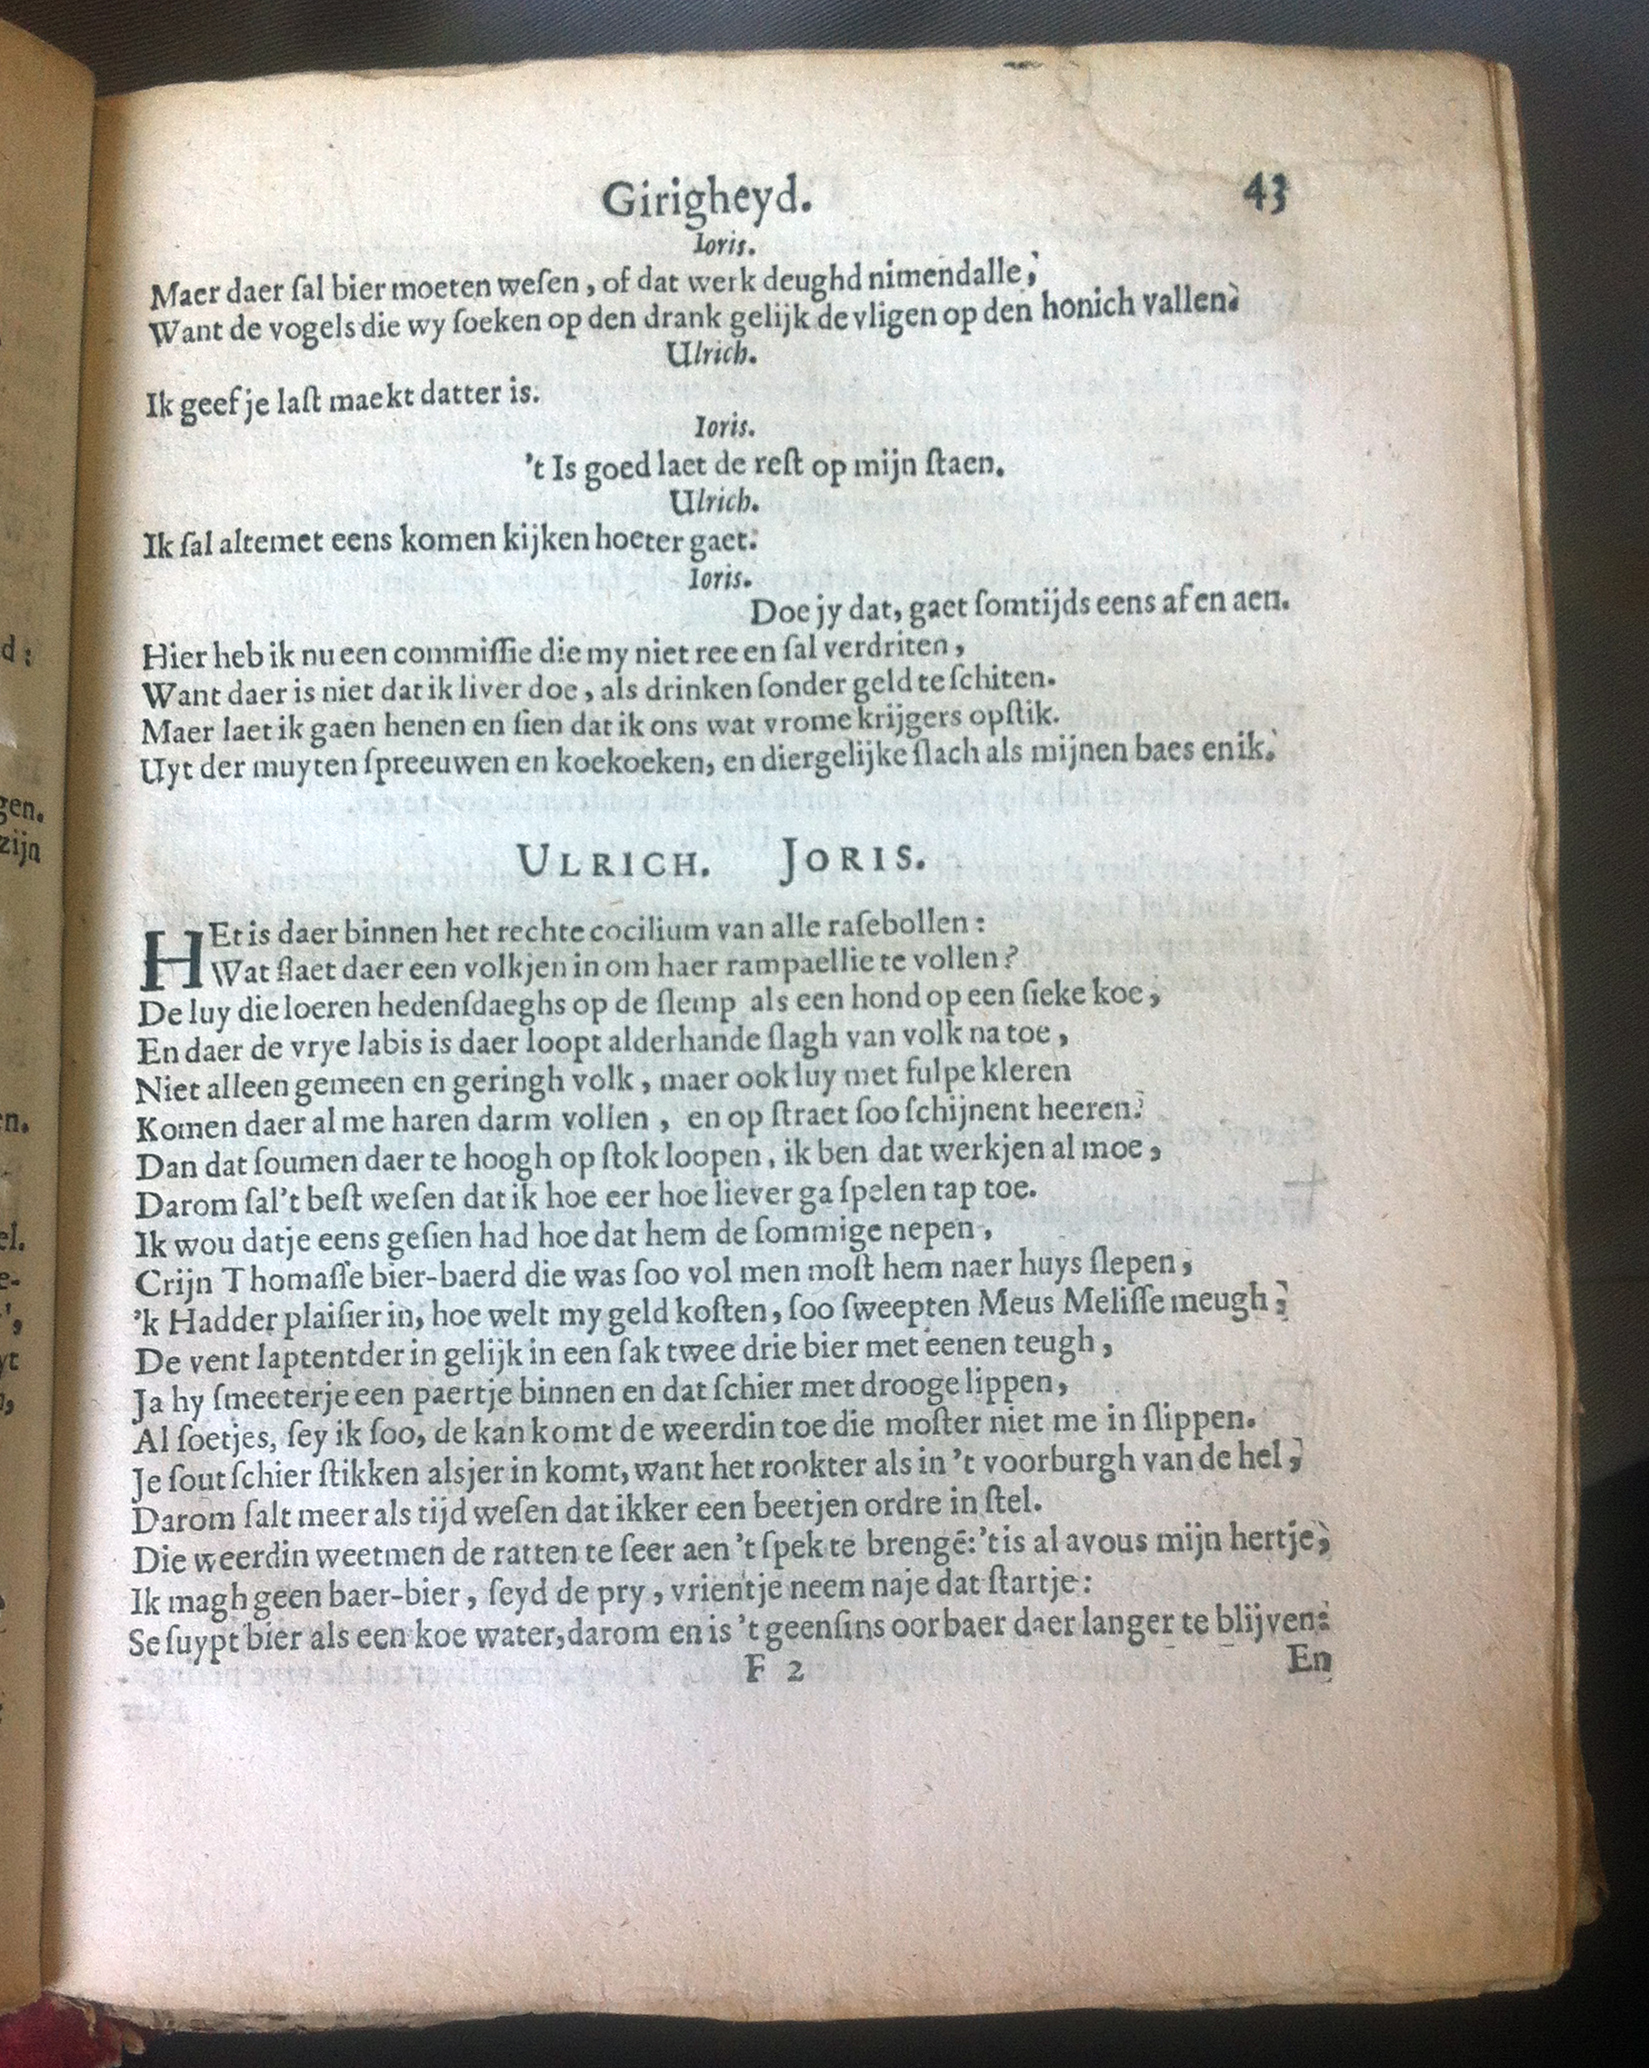 Girigheyd. 43
Ioris.
Maer daer ſal bier moeten weſen, of dat werk deughd nimendalle;
Want de vogels die wy ſoeken op den drank gelijk de vligen op den honich vallen.
Ulrich.
Ik geef je laſt maekt datter is.
Ioris.
't Is goed laet de reſt op mijn ſtaen.
Ulrich.
Ik ſal altemet eens komen kijken hoeter gaet.
Ioris.
Doe jy dat, gaet ſomtijds eens af en aen.
Hier heb ik nu een commiſſie die my niet ree en ſal verdriten,
Want daer is niet dat ik liver doe, als drinken ſonder geld te ſchiten.
Maer laet ik gaen henen en ſien dat ik ons wat vrome krijgers opſtik.
Uyt der muyten ſpreeuwen en koekoeken, en diergelijke ſlach als mijnen baes en ik.
ULRICH. JORIS.
HEt is daer binnen het rechte cocilium van alle raſebollen:
Wat ſlaet daer een volkjen in om haer rampaellie te vollen?
De luy die loeren hedenſdaeghs op de ſlemp als een hond op een ſieke koe,
En daer de vrye labis is daer loopt alderhande ſlagh van volk na toe,
Niet alleen gemeen en geringh volk, maer ook luy met fulpe kleren
Komen daer al me haren darm vollen, en op ſtraet ſoo ſchijnent heeren.
Dan dat ſoumen daer te hoogh op ſtok loopen, ik ben dat werkjen al moe,
Darom ſal't beſt weſen dat ik hoe eer hoe liever ga ſpelen tap toe.
Ik wou datje eens geſien had hoe dat hem de ſommige nepen,
Crijn Thomaſſe bier-baerd die was ſoo vol men moſt hem naer huys ſlepen,
'k Hadder plaiſier in, hoe welt my geld koſten, ſoo ſweepten Meus Meliſſe meugh;
De vent laptentder in gelijk in een ſak twee drie bier met eenen teugh,
Ja hy ſmeeterje een paertje binnen en dat ſchier met drooge lippen,
Al ſoetjes, ſey ik ſoo, de kan komt de weerdin toe die moſter niet me in ſlippen.
Je ſout ſchier ſtikken alsjer in komt, want het rookter als in 't voorburgh van de hel,
Darom ſalt meer als tijd weſen dat ikker een beetjen ordre in ſtel.
Die weerdin weetmen de ratten te ſeer aen 't ſpek te brengē: 'tis al avous mijn hertje,
Ik magh geen baer-bier, ſeyd de pry, vrientje neem naje dat ſtartje:
Se ſuypt bier als een koe water, darom en is 't geenſins oorbaer daer langer te blijven:
F 2 En